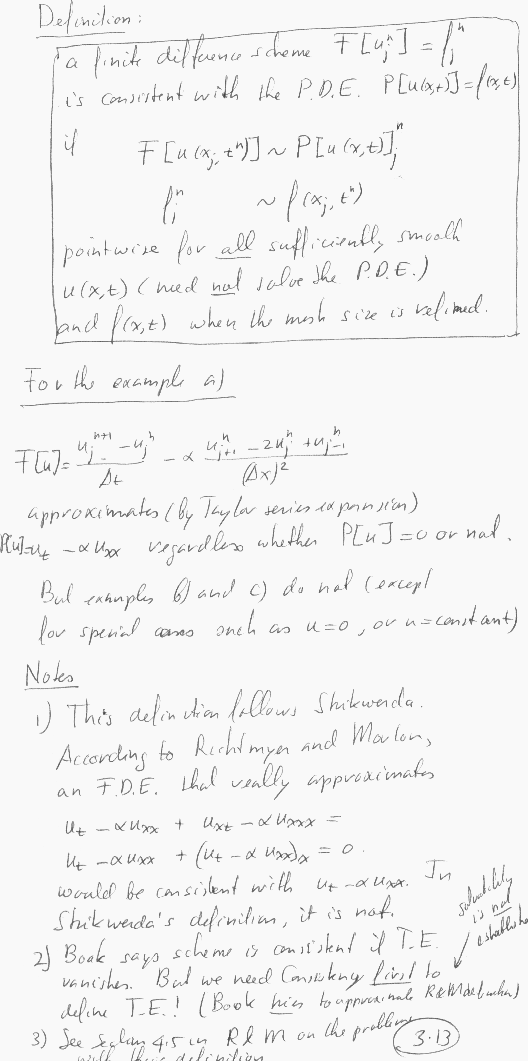 Definition:
a finite difference scheme F[u_j^n] = f_j^n
is consistent with the P.D.E. P[u(x,t)]=f(x,t)
if F[u(x_j, t^n)] ~ P[u(x,t)]_j^n
f_j^n ~ f(x_j, t^n)
pointwise for all sufficiently smooth
u(x,t) (need not solve the P.D.E.)
and f(x,t) when the mesh size is refined.
For the example a)
F[u]= (u_j^{n+1} - u_j^n)/Δt - α (u_{j+1}^n - 2u_j^n + u_{j-1}^n)/(Δx)^2
approximates (by Taylor series expansion)
P[u]=u_t - αu_xx regardless whether P[u]=0 or not.
But examples b) and c) do not (except
for special cases such as u=0, or u=constant)
Notes
1) This definition follows Strikwerda.
According to Richtmyer and Morton,
an F.D.E. that really approximates
u_t - αu_xx + u_xt - αu_xxx =
u_t - αu_xx + (u_t - αu_xx)_x = 0
would be consistent with u_t - αu_xx. In
Strikwerda's definition, it is not.
solvability
is not
established
2) Book says scheme is consistent if T.E.
vanishes. But we need Consistency first to
define T.E.! (Book tries to approximate R&M definition)
3) See Section 4.5 in R & M on the problem
with their definition
3.13